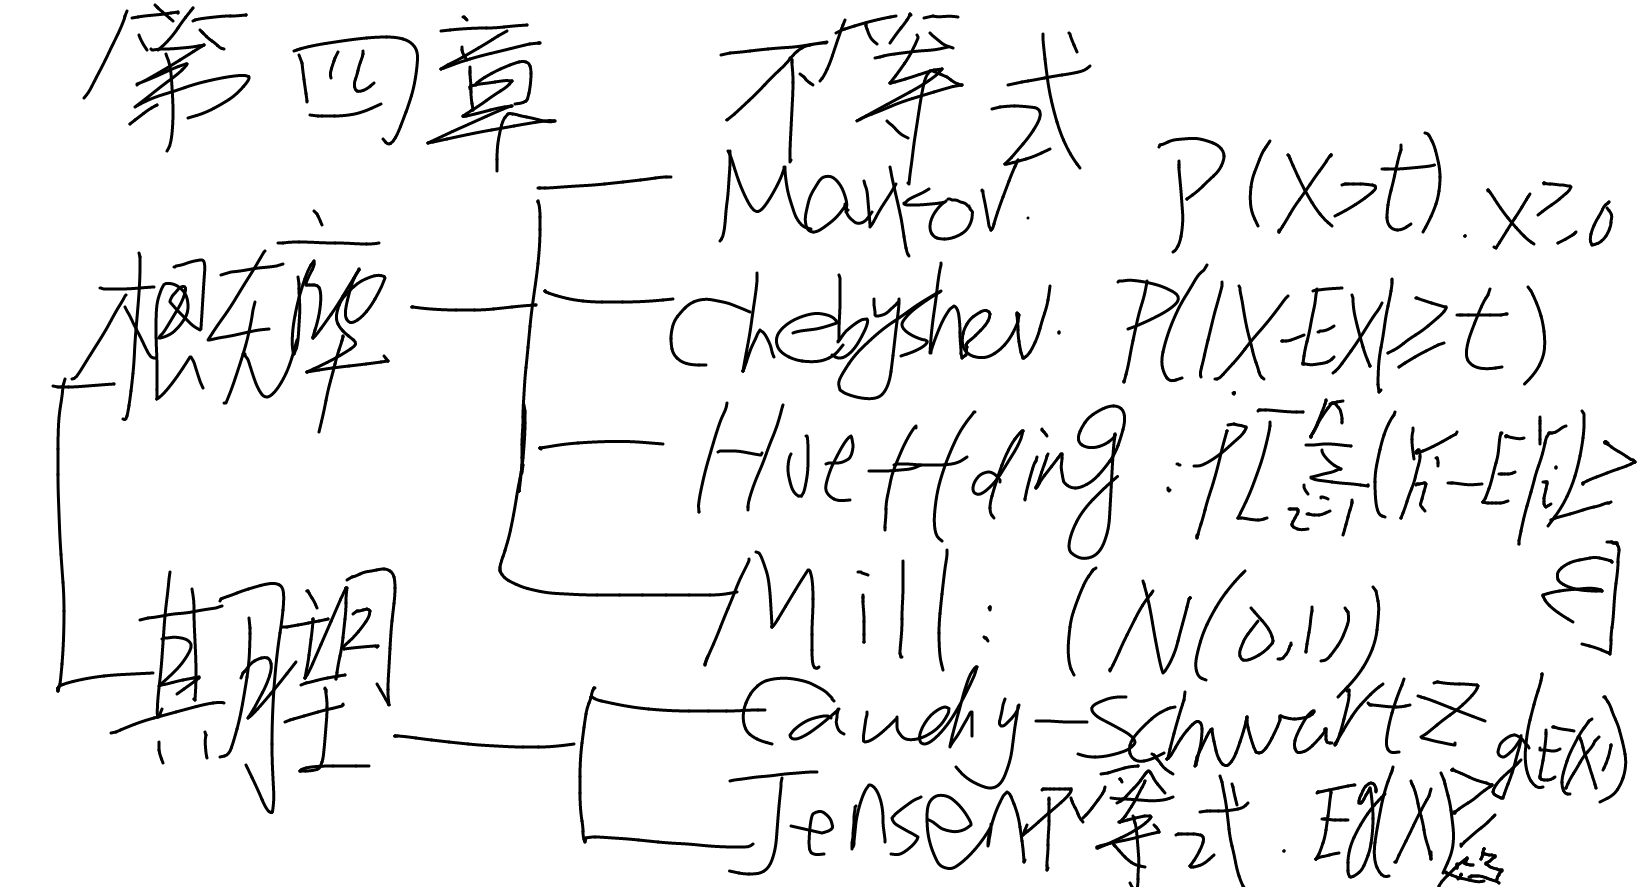 第四章 不等式
Markov. P(X>t). X≥0
概率
Chebyshev. P(|X-EX|≥t)
Hoeffding: P[∑_{i=1}^{n}(Yi-EYi)≥ε]
Mill: (N(0,1))
期望
Cauchy-Schwartz
Jensen不等式. Eg(X)≥g(E(X))